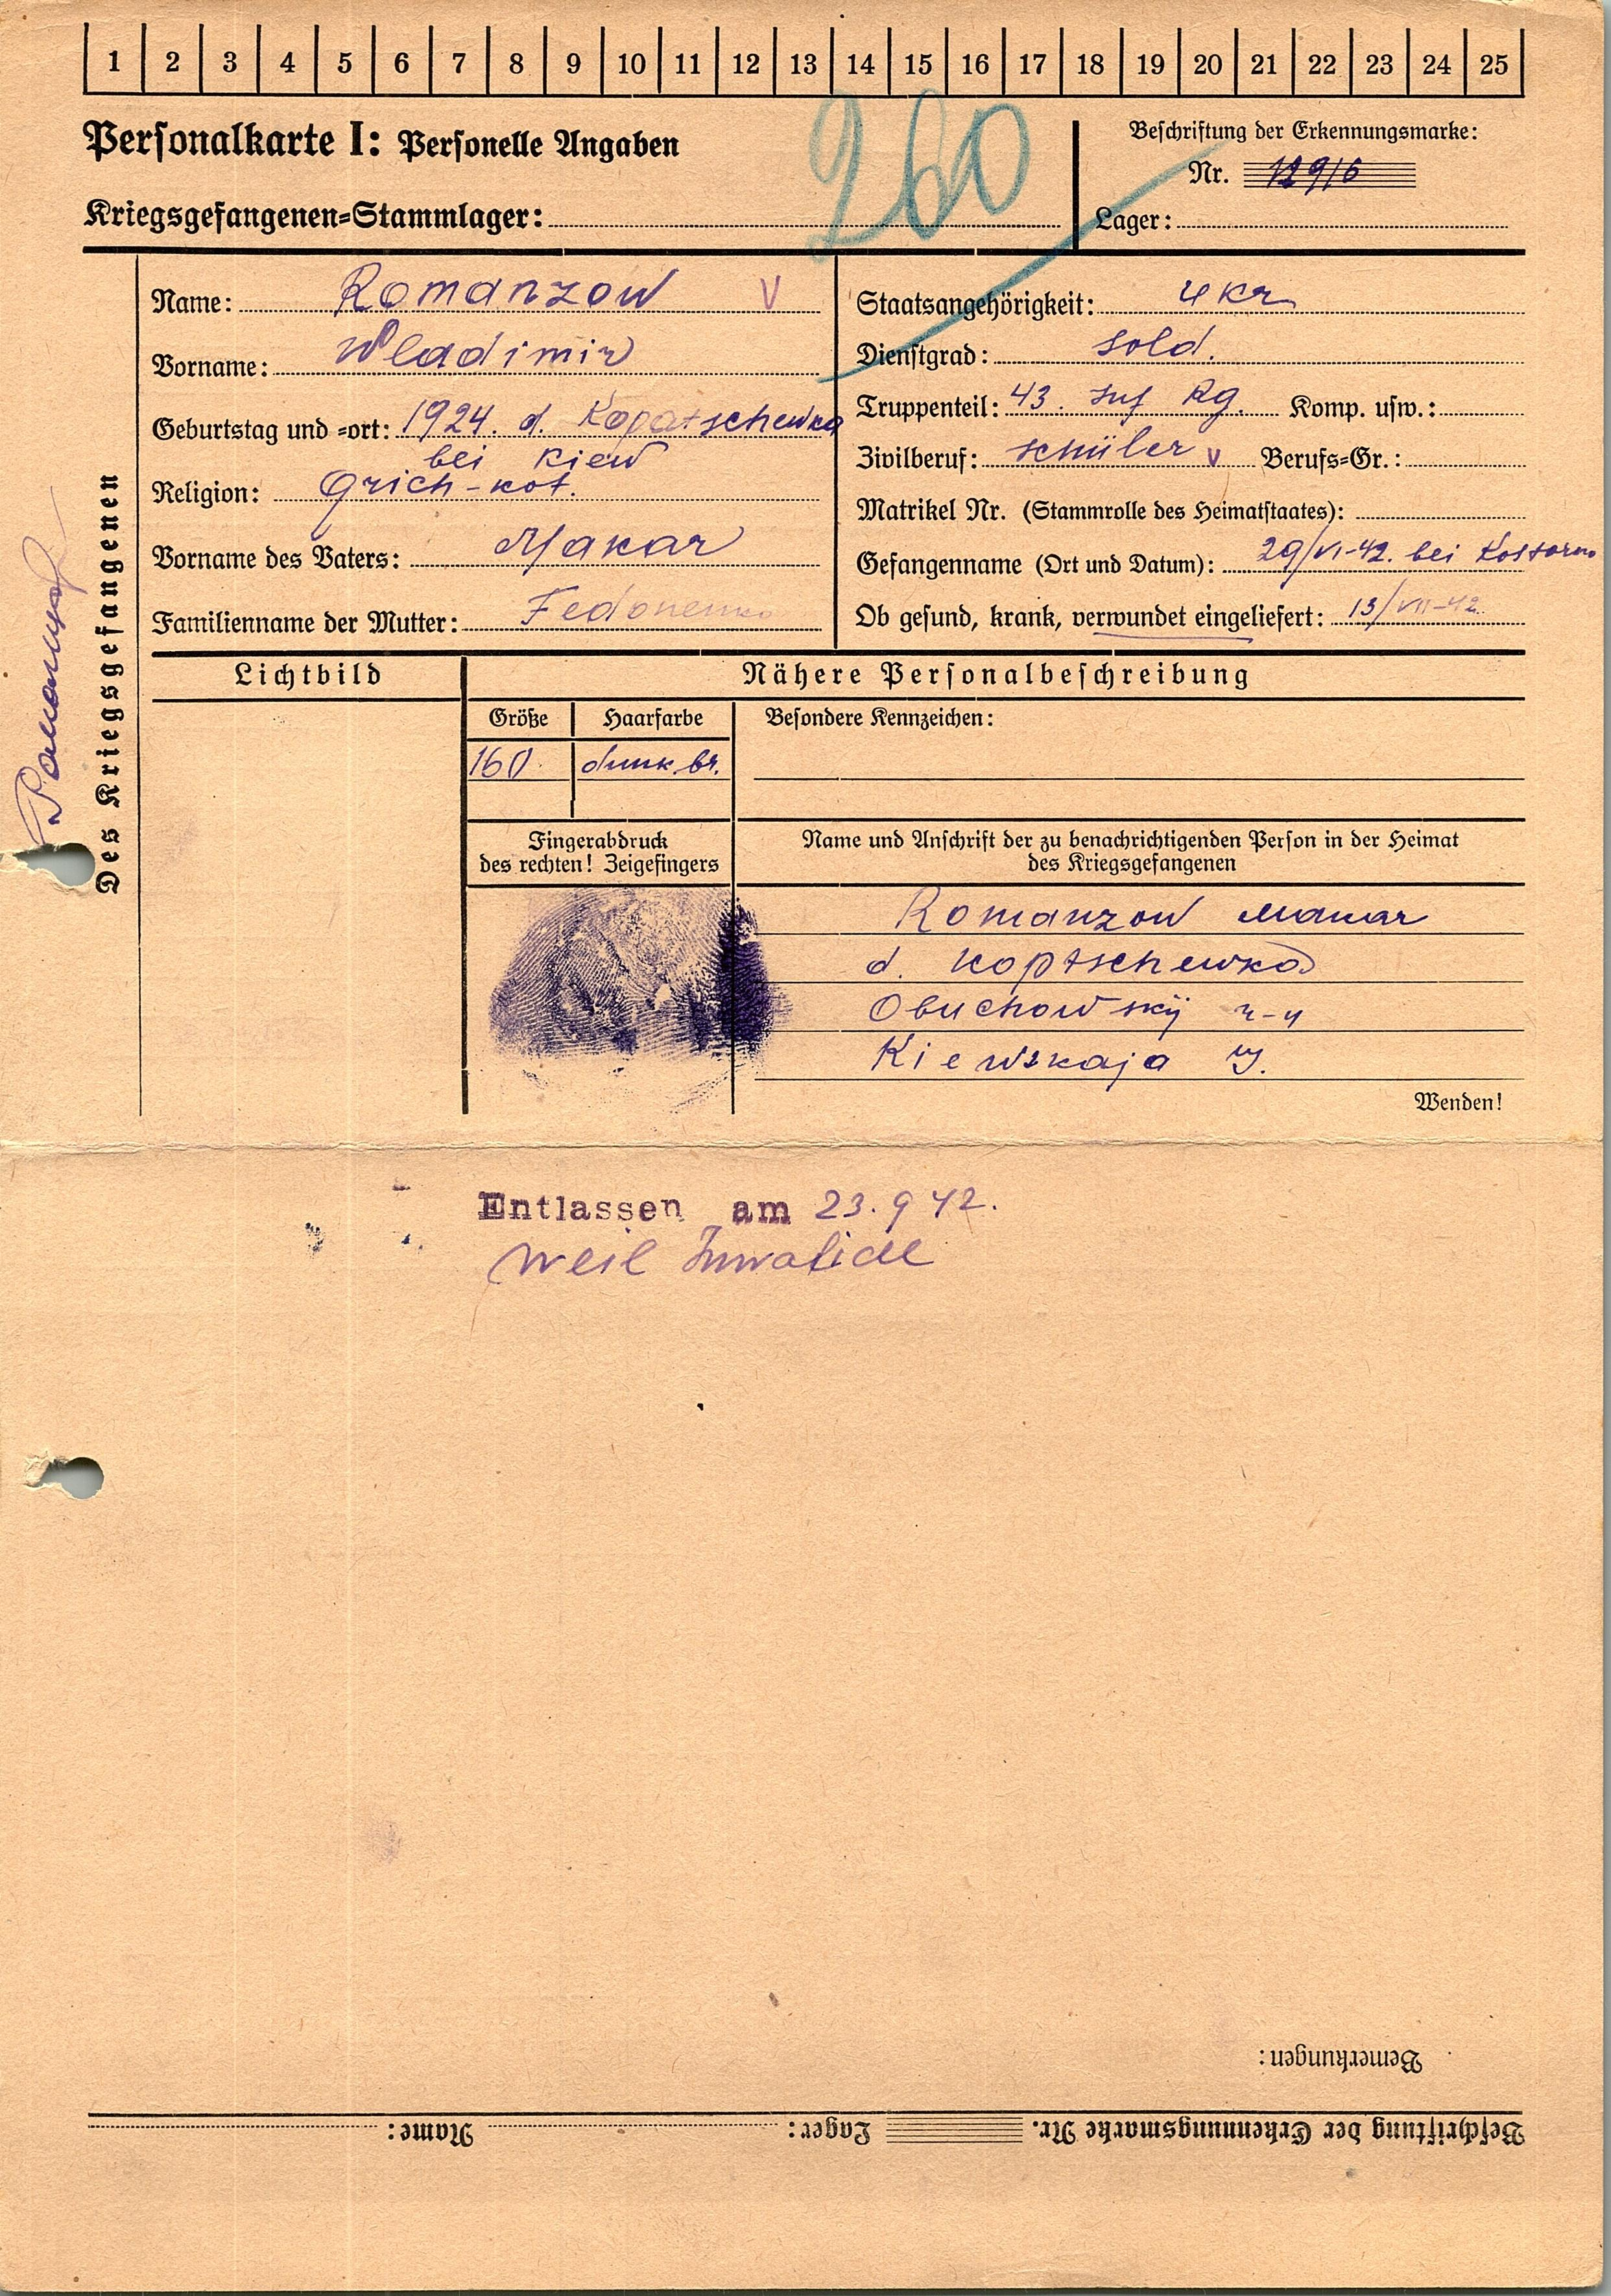 1 2 3 4 5 6 7 8 9 10 11 12 13 14 15 16 17 18 19 20 21 22 23 24 25
Personalkarte I: Personelle Angaben
Kriegsgefangenen-Stammlager:
260
Beschriftung der Erkennungsmarke:
Nr. 12916
Lager:
Des Kriegsgefangenen
Name: Romanzow V
Vorname: Wladimir
Geburtstag und -ort: 1924. d. Kopatschewka
bei Kiew
Religion: Grich-kat.
Vorname des Vaters: Makar
Familienname der Mutter: Fedonenko
Staatsangehörigkeit: Ukr
Dienstgrad: Sold.
Truppenteil: 43. Inf Rg. Komp. usw.:
Zivilberuf: Schüler v Berufs-Gr.:
Matrikel Nr. (Stammrolle des Heimatstaates):
Gefangenname (Ort und Datum): 29/VI-42. bei
Ob gesund, krank, verwundet eingeliefert: 13/VII-42.
Lichtbild
Nähere Personalbeschreibung
Größe Haarfarbe Besondere Kennzeichen:
160 dunk. br.
Fingerabdruck
des rechten! Zeigefingers
Name und Anschrift der zu benachrichtigenden Person in der Heimat
des Kriegsgefangenen
Romanzow Makar
d. Koptschewka
Obuchowskij r-n
Kiewskaja
Wenden!
Entlassen am 23.9 42.
weil Invalide
Bemerkungen:
Beschriftung der Erkennungsmarke Nr. Lager: Name: